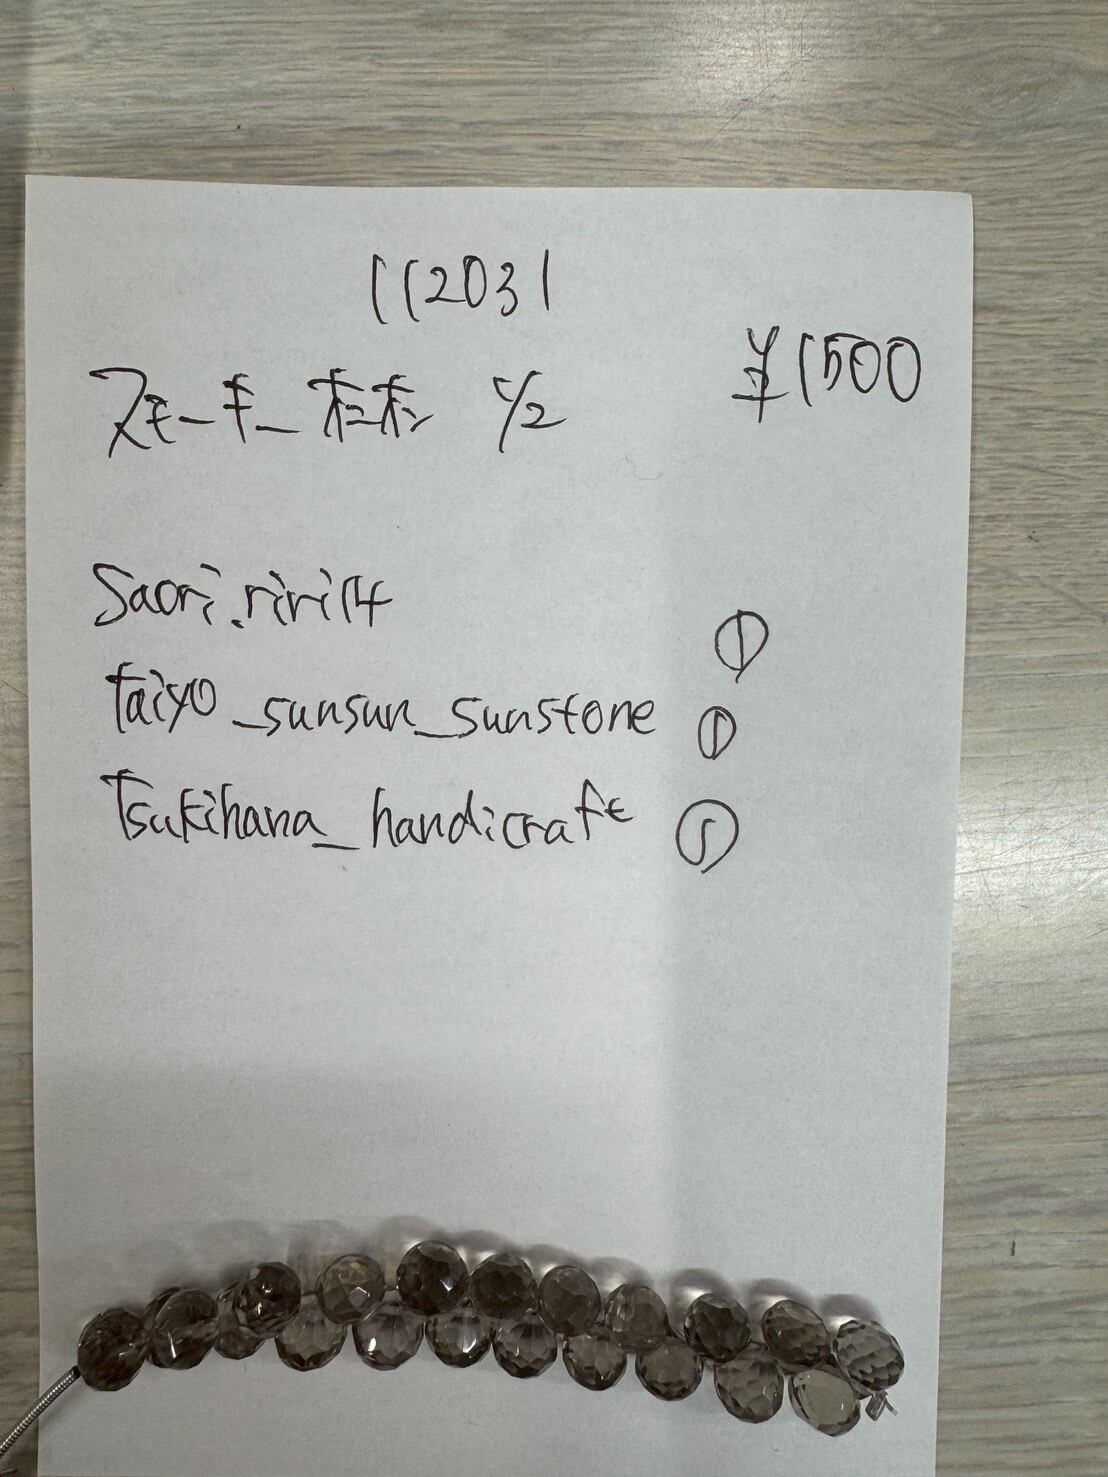 112031
¥1500
スモーキー オニオン 1/2
Saori.riri14 ①
taiyo_sunsun_sunstone ①
Tsukihana_handicraft ⑤